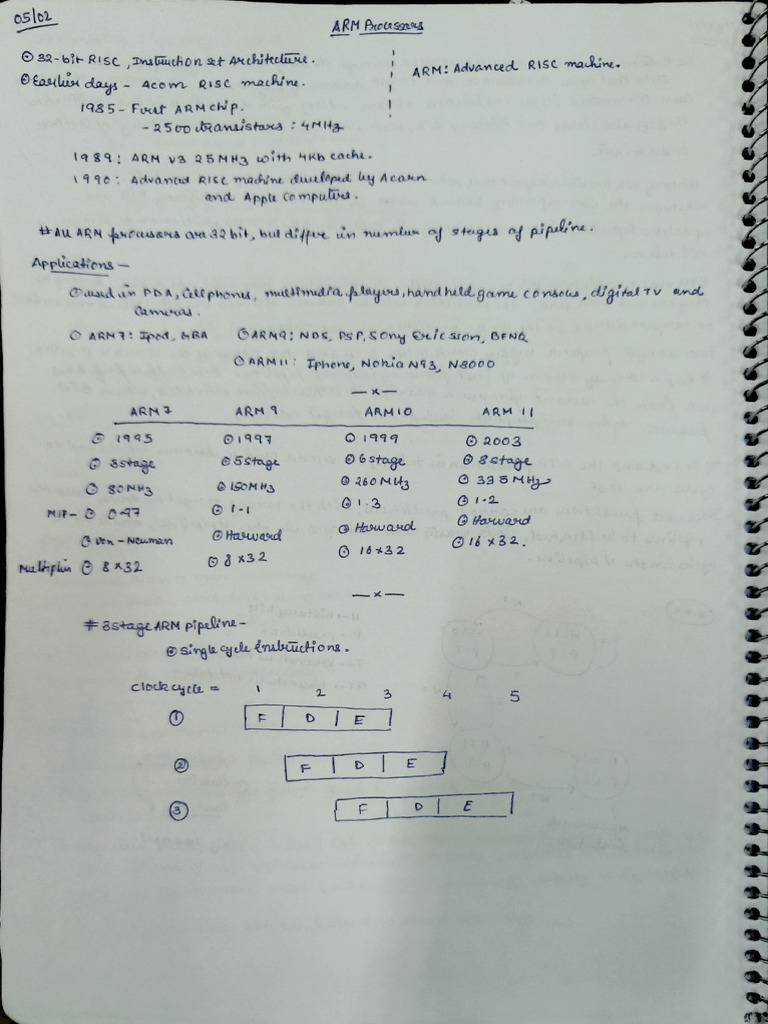 05/02
ARM Processors
⊙ 32-bit RISC, Instruction set Architecture.
ARM: Advanced RISC machine.
⊙ Earlier days - Acorn RISC machine.
1985 - First ARM chip.
- 2500 transistors : 4MHz
1989: ARM V3 25MHz with 4Kb cache.
1990: Advanced RISC machine developed by Acorn
and Apple Computers.
# All ARM processors are 32 bit, but differ in number of stages of pipeline.
Applications -
⊙ used in PDA, cell phones, multimedia players, handheld game consous, digital TV and
Cameras.
⊙ ARM7: Ipod, GBA ⊙ ARM9: NDS, PSP, Sony Ericsson, BENQ
⊙ ARM11: Iphone, Nokia N93, N8000
—x—
ARM 7 ARM 9 ARM10 ARM 11
⊙ 1995 ⊙ 1997 ⊙ 1999 ⊙ 2003
⊙ 3stage ⊙ 5stage ⊙ 6stage ⊙ 8stage
⊙ 80MHz ⊙ 150MHz ⊙ 260MHz ⊙ 335MHz
MIP- ⊙ 0.97 ⊙ 1.1 ⊙ 1.3 ⊙ 1.2
⊙ Von-Neuman ⊙ Harward ⊙ Harward ⊙ Harward
Multiplier ⊙ 8×32 ⊙ 8×32 ⊙ 16×32 ⊙ 16×32.
—x—
# 3stage ARM pipeline-
⊙ Single cycle Instructions.
Clock cycle = 1 2 3 4 5
① F D E
② F D E
③ F D E